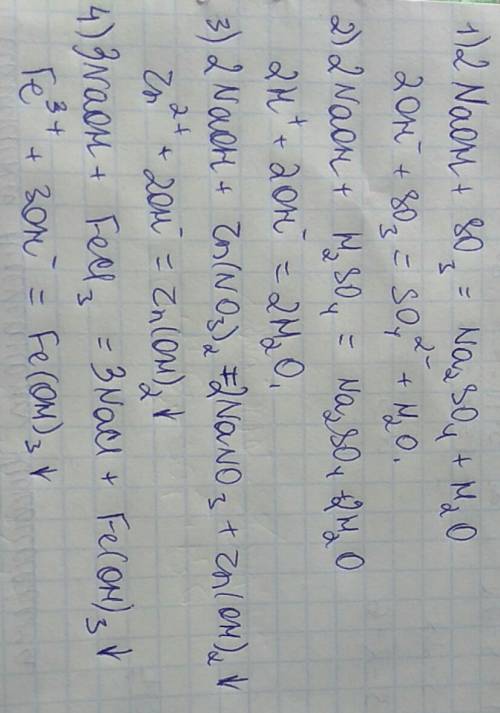 1) 2 NaOH + SO₃ = Na₂SO₄ + H₂O
2OH⁻ + SO₃ = SO₄²⁻ + H₂O.
2) 2 NaOH + H₂SO₄ = Na₂SO₄ + 2H₂O
2H⁺ + 2OH⁻ = 2H₂O.
3) 2 NaOH + Zn(NO₃)₂ = 2NaNO₃ + Zn(OH)₂↓
Zn²⁺ + 2OH⁻ = Zn(OH)₂↓
4) 3NaOH + FeCl₃ = 3NaCl + Fe(OH)₃↓
Fe³⁺ + 3OH⁻ = Fe(OH)₃↓